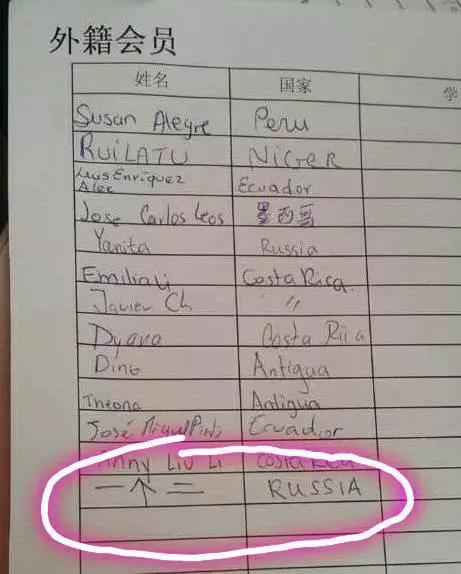 外籍会员
姓名 国家 学
Susan Alegre Peru
RUiLATU NiGeR
Luis Enriquez Ecuador
Alec
Jose Carlos Leos 墨西哥
Yanita Russia
Emilia Li Costa Rica
Javier Ch "
Dyana Costa Rica
Dino Antigua
Theona Antigua
José Miguel Ecuador
Anny Liu Li Costa Rica
一个二 RUSSIA